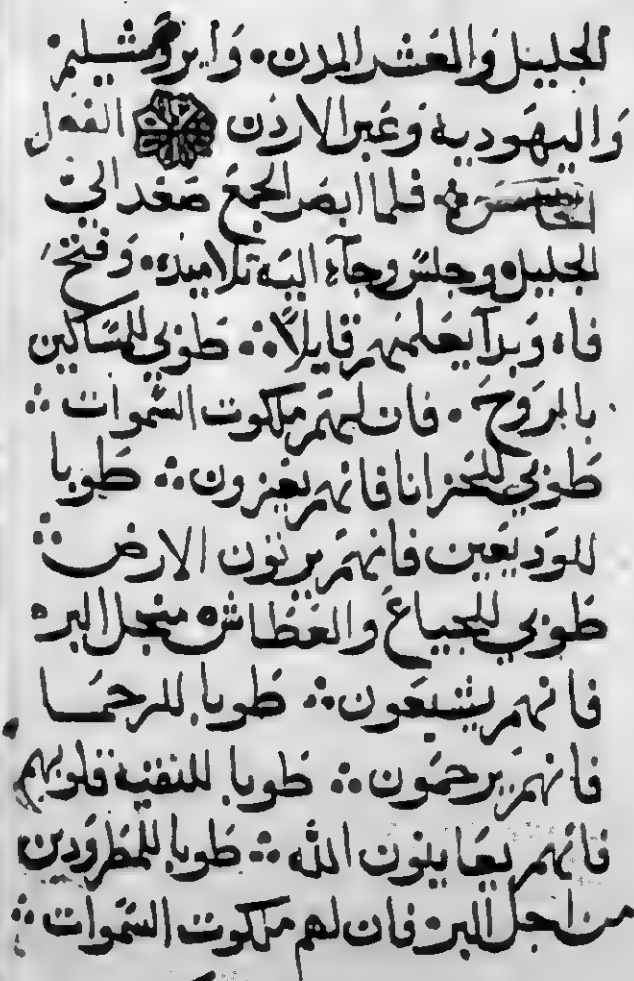 الجليل والعشر المدن. وايروشليم
واليهودية وعبر الاردن الفصل
الخامس فلما ابصر الجمع صعد الى
الجليل وجلس وجآء اليه تلاميذه. وفتح
فاه وبدآ يعلمهم قايلاً ∴ طوبي للمساكين
بالروح. فان لهم ملكوت السموات ∴
طوبي للحزانا فانهم يعزون ∴ طوبا
للوديعين فانهم يرثون الارض ∴
طوبي للجياع والعطاش من اجل البر
فانهم يشبعون ∴ طوبا للرحما
فانهم يرحمون ∴ طوبا للنقية قلوبهم
فانهم يعاينون الله ∴ طوبا للمطرودين
من اجل البر فان لهم ملكوت السموات ∴